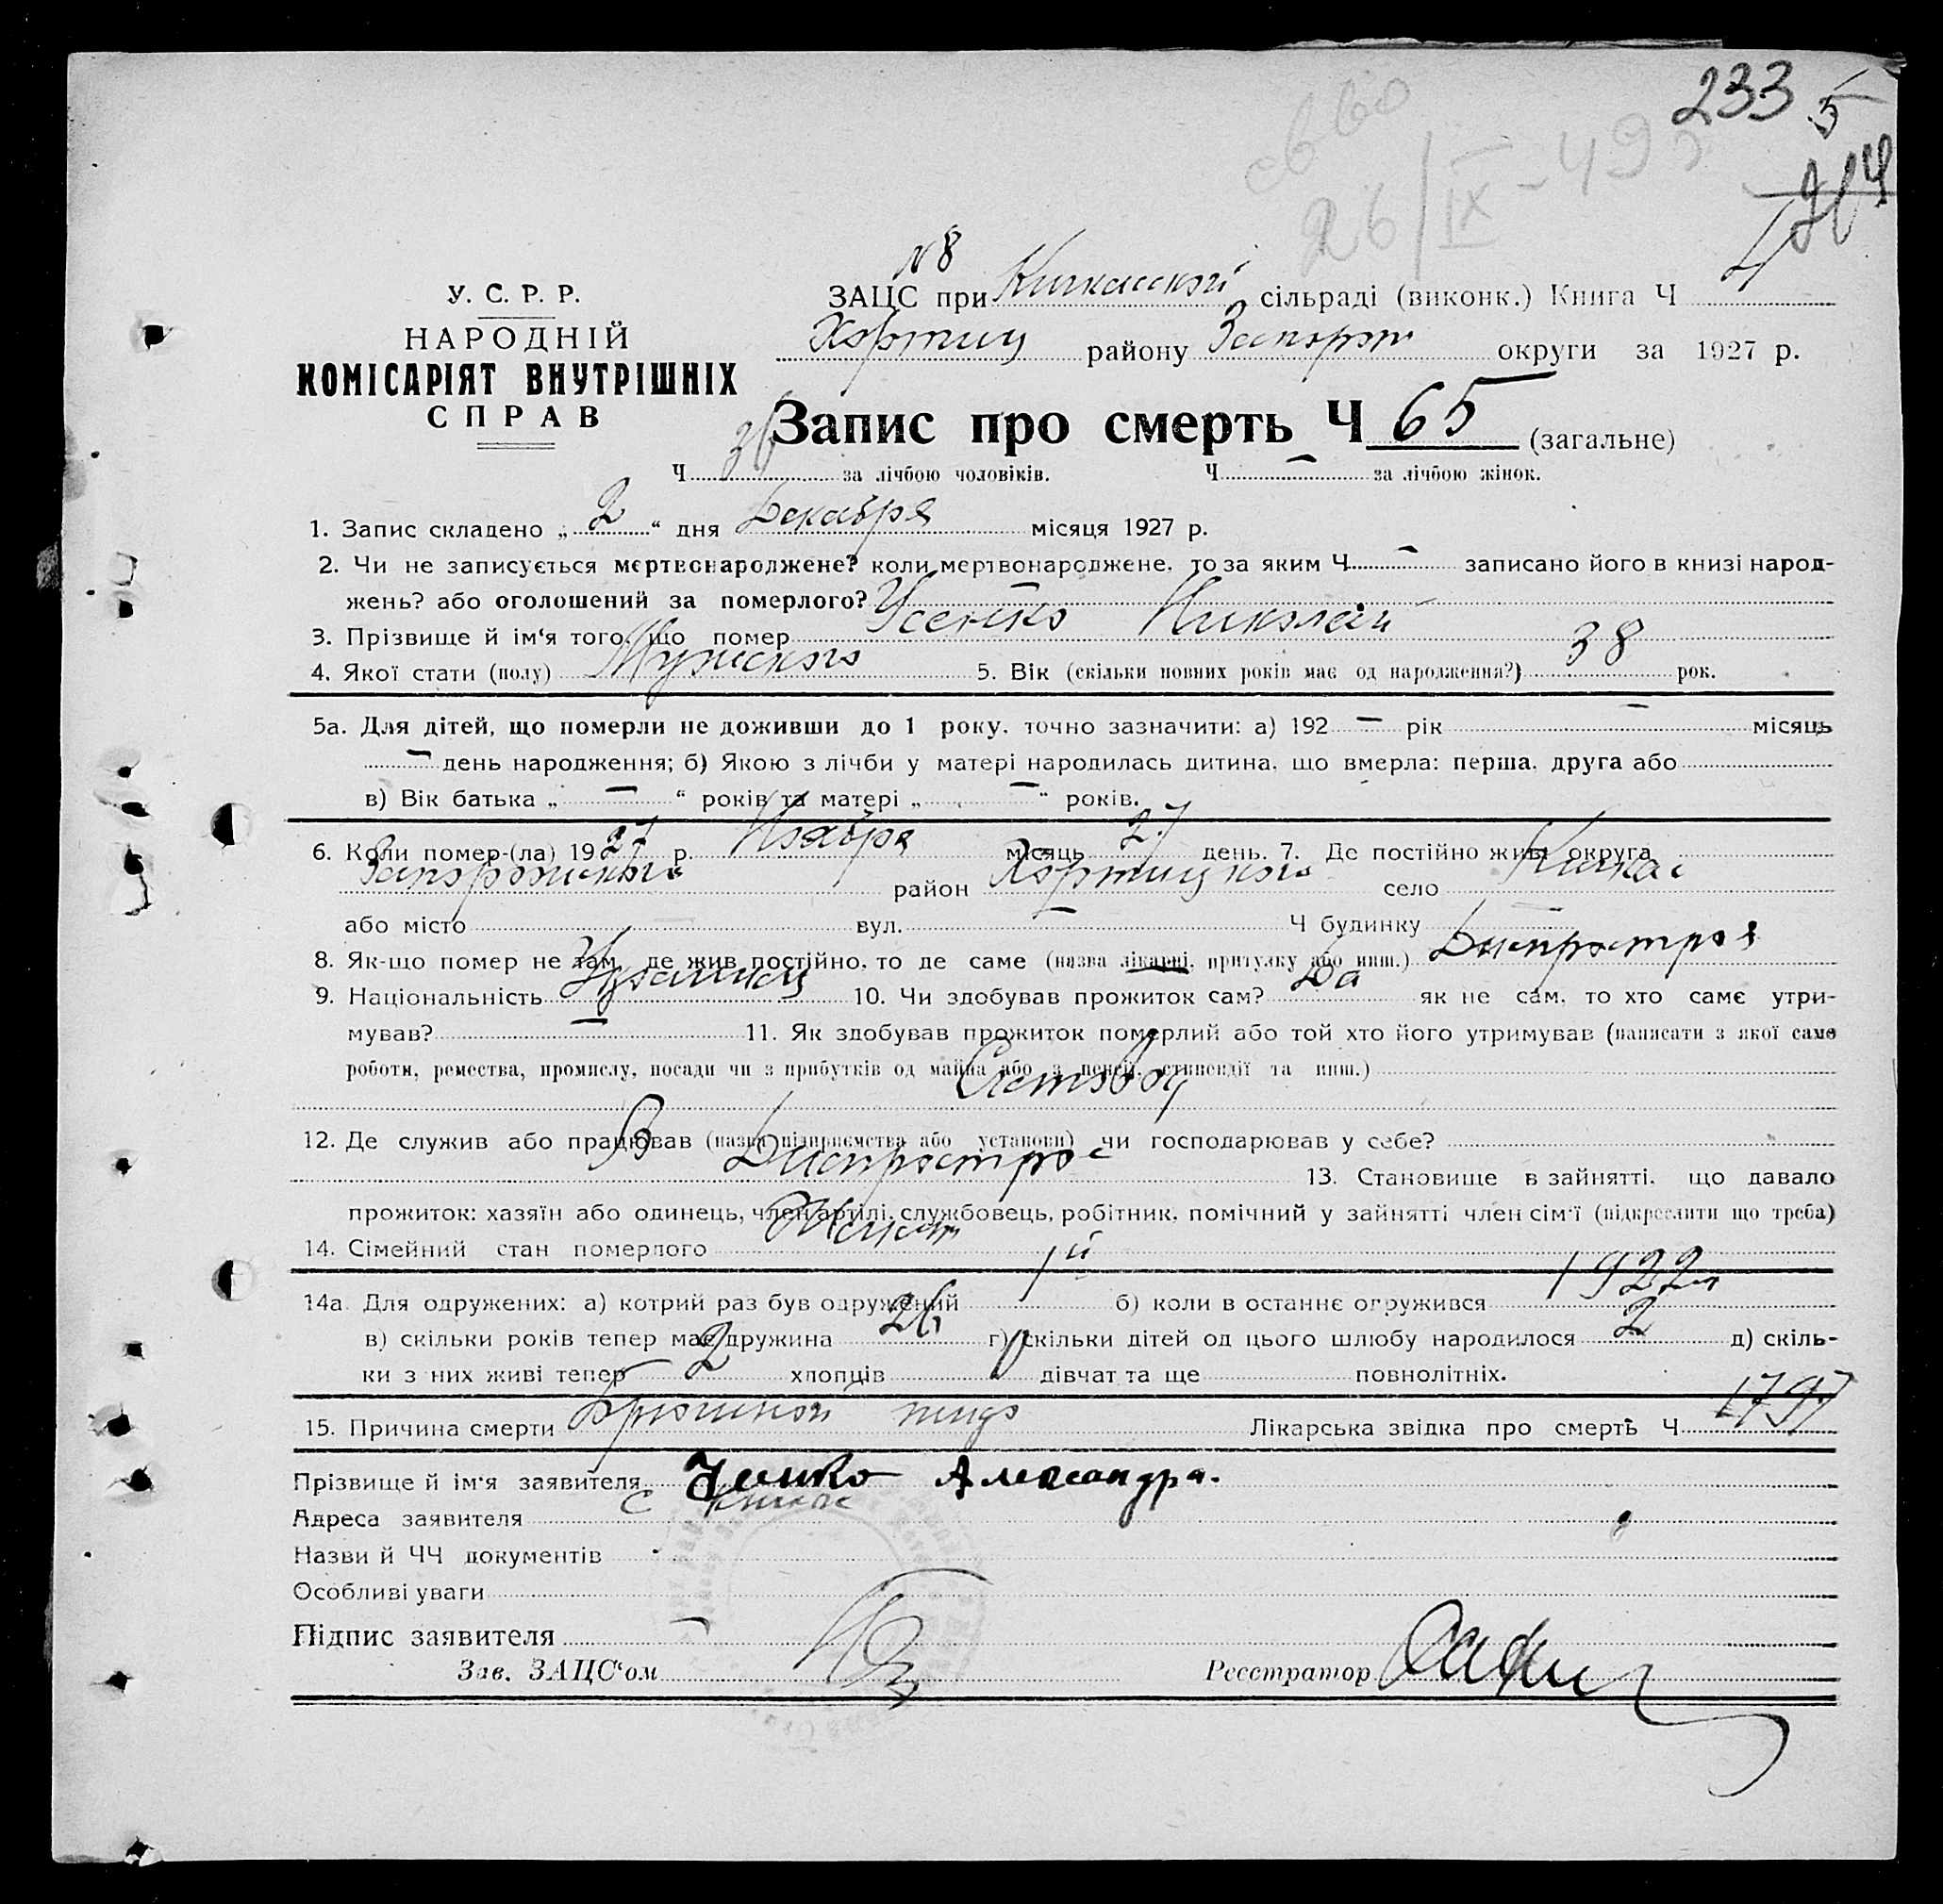 233 5
св во
26/IX - 49 г
204
N 8
У. С. Р. Р.
НАРОДНІЙ
КОМІСАРІЯТ ВНУТРІШНІХ
СПРАВ
ЗАЦС при Кичкасской сільраді (виконк.) Книга Ч
Хортиц району Запорож округи за 1927 р.
Запис про смерть Ч 65 (загальне)
Ч 36 за лічбою чоловіків. Ч — за лічбою жінок.
1. Запис складено „ 2 “ дня Декабря місяця 1927 р.
2. Чи не записується мертвонароджене? коли мертвонароджене, то за яким Ч — записано його в книзі народ-
жень? або оголошений за померлого?
3. Прізвище й ім‘я того, що помер Усенко Николай
4. Якої стати (полу) Мужского 5. Вік (скільки повних років має од народження?) 38 рок.
5а. Для дітей, що померли не доживши до 1 року, точно зазначити: а) 192 — рік — місяць
— день народження; б) Якою з лічби у матері народилась дитина, що вмерла: перша, друга або
в) Вік батька „ — “ років та матері „ — “ років.
6. Коли помер-(ла) 1927 р. Ноября місяць 27 день. 7. Де постійно жив: округа
Запорожский район Хортицкого село Кичкас
або місто — вул. — Ч будинку
8. Як-що помер не там, де жив постійно, то де саме (назва лікарні, притулку або инш.) Днепростроя
9. Національність Украинец 10. Чи здобував прожиток сам? Да як не сам, то хто саме утри-
мував? — 11. Як здобував прожиток померлий або той хто його утримував (написати з якої саме
роботи, ремества, промислу, посади чи з прибутків од майна або з пенсії, стипендії та инш.)
Счетовод
12. Де служив або працював (назва підприємства або установи) чи господарював у себе?
В Днепрострое 13. Становище в зайнятті, що давало
прожиток: хазяїн або одинець, член артілі, службовець, робітник, помічний у зайнятті член сім‘ї (підкреслити що треба)
14. Сімейний стан померлого Женат
14а. Для одружених: а) котрий раз був одружений 1й б) коли в останнє одружився 1922 г
в) скільки років тепер має дружина 26 г) скільки дітей од цього шлюбу народилося 2 д) скіль-
ки з них живі тепер 2 хлопців дівчат та ще повнолітніх.
15. Причина смерти Брюшной тиф Лікарська звідка про смерть Ч 1797
Прізвище й ім‘я заявителя Усенко Александра.
Адреса заявителя с Кичкас
Назви й ЧЧ документів
Особливі уваги
Підпис заявителя —
Зав. ЗАЦС‘ом
Реєстратор